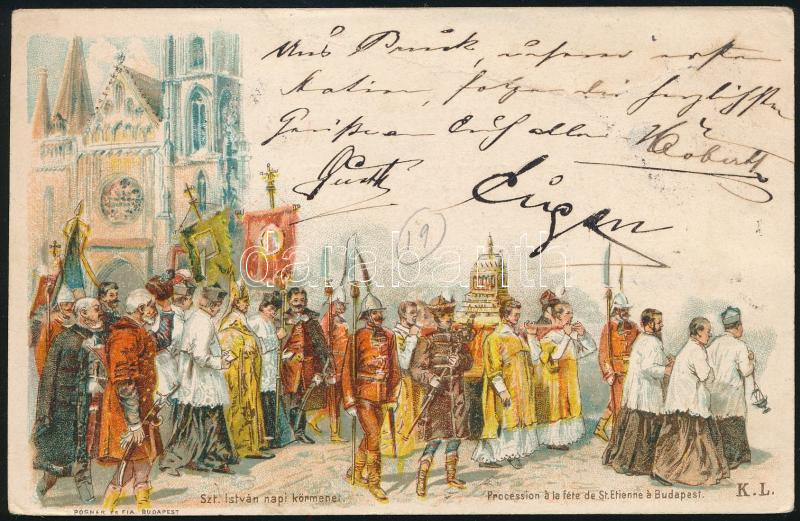 Aus Bruck, unserer ersten
Station, folgen die herzlichsten
Grüße an Euch alle
Robert
Eugen
19
darabanth
Szt. István napi körmenet.
Procession à la fête de St. Etienne à Budapest.
K. L.
POSNER és FIA, BUDAPEST